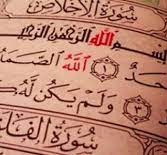 سُورَةُ الْإِخْلَاصِ
سْمِ اللَّهِ الرَّحْمَٰنِ الرَّحِيمِ
حَدٌ ١ اللَّهُ الصَّمَ
٣ وَلَمْ يَكُن لَّهُ
سُورَةُ الْفَلَ